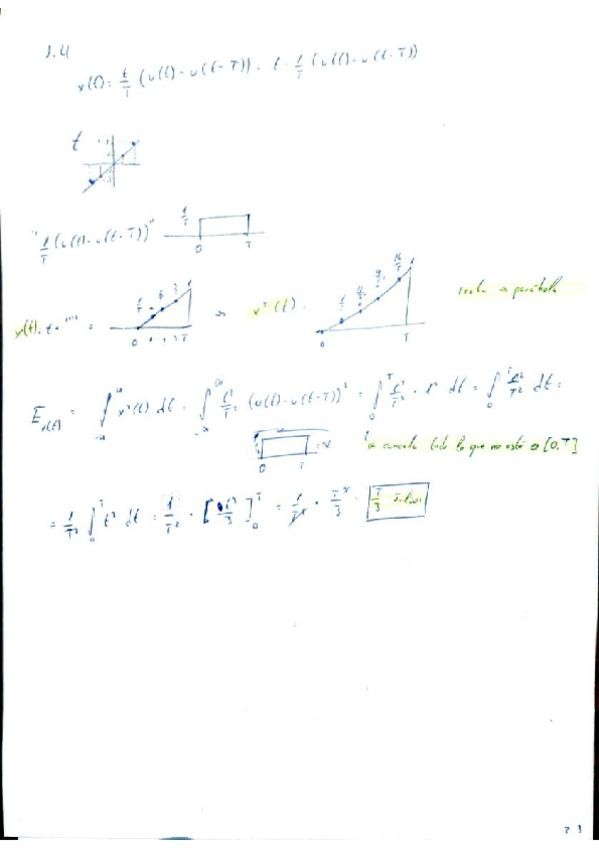 1.4
x(t) = t/T (u(t) - u(t-T)) = t · 1/T (u(t) - u(t-T))
t
"1/T (u(t) - u(t-T))"
0 T
x(t) =
0 1 2 3 T
x²(t)
0 T
recta → parábola
E_x(t) = ∫_{-∞}^{∞} x²(t) dt = ∫_{-∞}^{∞} t²/T² (u(t) - u(t-T))² = ∫_0^T t²/T² · 1² dt = ∫_0^T t²/T² dt =
0 T
cancela todo lo que no esté en [0,T]
= 1/T² ∫_0^T t² dt = 1/T² · [t³/3]_0^T = 1/T² · T³/3 = T/3 Julios